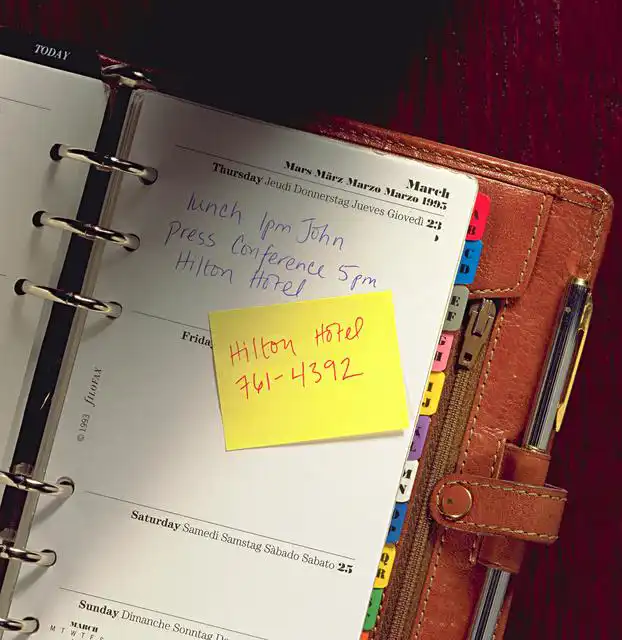 TODAY
March
Mars März Marzo Marzo 1995
Thursday Jeudi Donnerstag Jueves Giovedi 23
lunch 1pm John
press Conference 5pm
Hilton Hotel
Hilton Hotel
761-4392
© 1993 FILOFAX
Saturday Samedi Samstag Sàbado Sabato 25
Sunday Dimanche Sonntag
MARCH
M T W T F S
A
B
C
D
E
F
H
I
J
L
M
N
P
Q
R